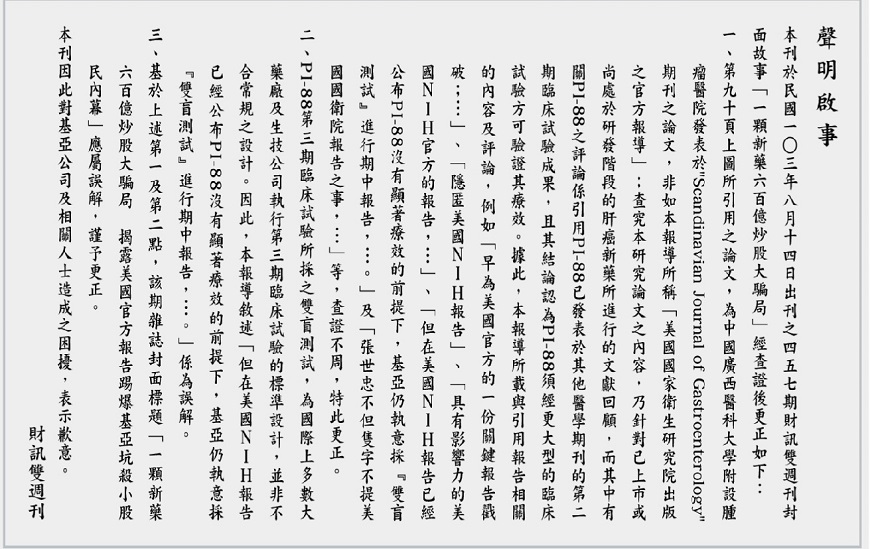 聲明啟事
本刊於民國一〇三年八月十四日出刊之四五七期財訊雙週刊封
面故事「一顆新藥六百億炒股大騙局」經查證後更正如下：
一、第九十頁上圖所引用之論文，為中國廣西醫科大學附設腫
瘤醫院發表於"Scandinavian Journal of Gastroenterology"
期刊之論文，非如本報導所稱「美國國家衛生研究院出版
之官方報導」；查究本研究論文之內容，乃針對已上市或
尚處於研發階段的肝癌新藥所進行的文獻回顧，而其中有
關PI-88之評論係引用PI-88已發表於其他醫學期刊的第二
期臨床試驗成果，且其結論認為PI-88須經更大型的臨床
試驗方可驗證其療效。據此，本報導所載與引用報告相關
的內容及評論，例如「早為美國官方的一份關鍵報告戳
破；…」、「隱匿美國NIH報告」、「具有影響力的美
國NIH官方的報告，…」、「但在美國NIH報告已經
公布PI-88沒有顯著療效的前提下，基亞仍執意採『雙盲
測試』進行期中報告，…。」及「張世忠不但隻字不提美
國國衛院報告之事，…」等，查證不周，特此更正。
二、PI-88第三期臨床試驗所採之雙盲測試，為國際上多數大
藥廠及生技公司執行第三期臨床試驗的標準設計，並非不
合常規之設計。因此，本報導敘述「但在美國NIH報告
已經公布PI-88沒有顯著療效的前提下，基亞仍執意採
『雙盲測試』進行期中報告，…。」係為誤解。
三、基於上述第一及第二點，該期雜誌封面標題「一顆新藥
六百億炒股大騙局　揭露美國官方報告踢爆基亞坑殺小股
民內幕」應屬誤解，謹予更正。
本刊因此對基亞公司及相關人士造成之困擾，表示歉意。
財訊雙週刊